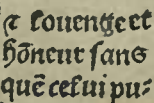 ⁊ louenge et
hõneur sans
quē celui pu⸗